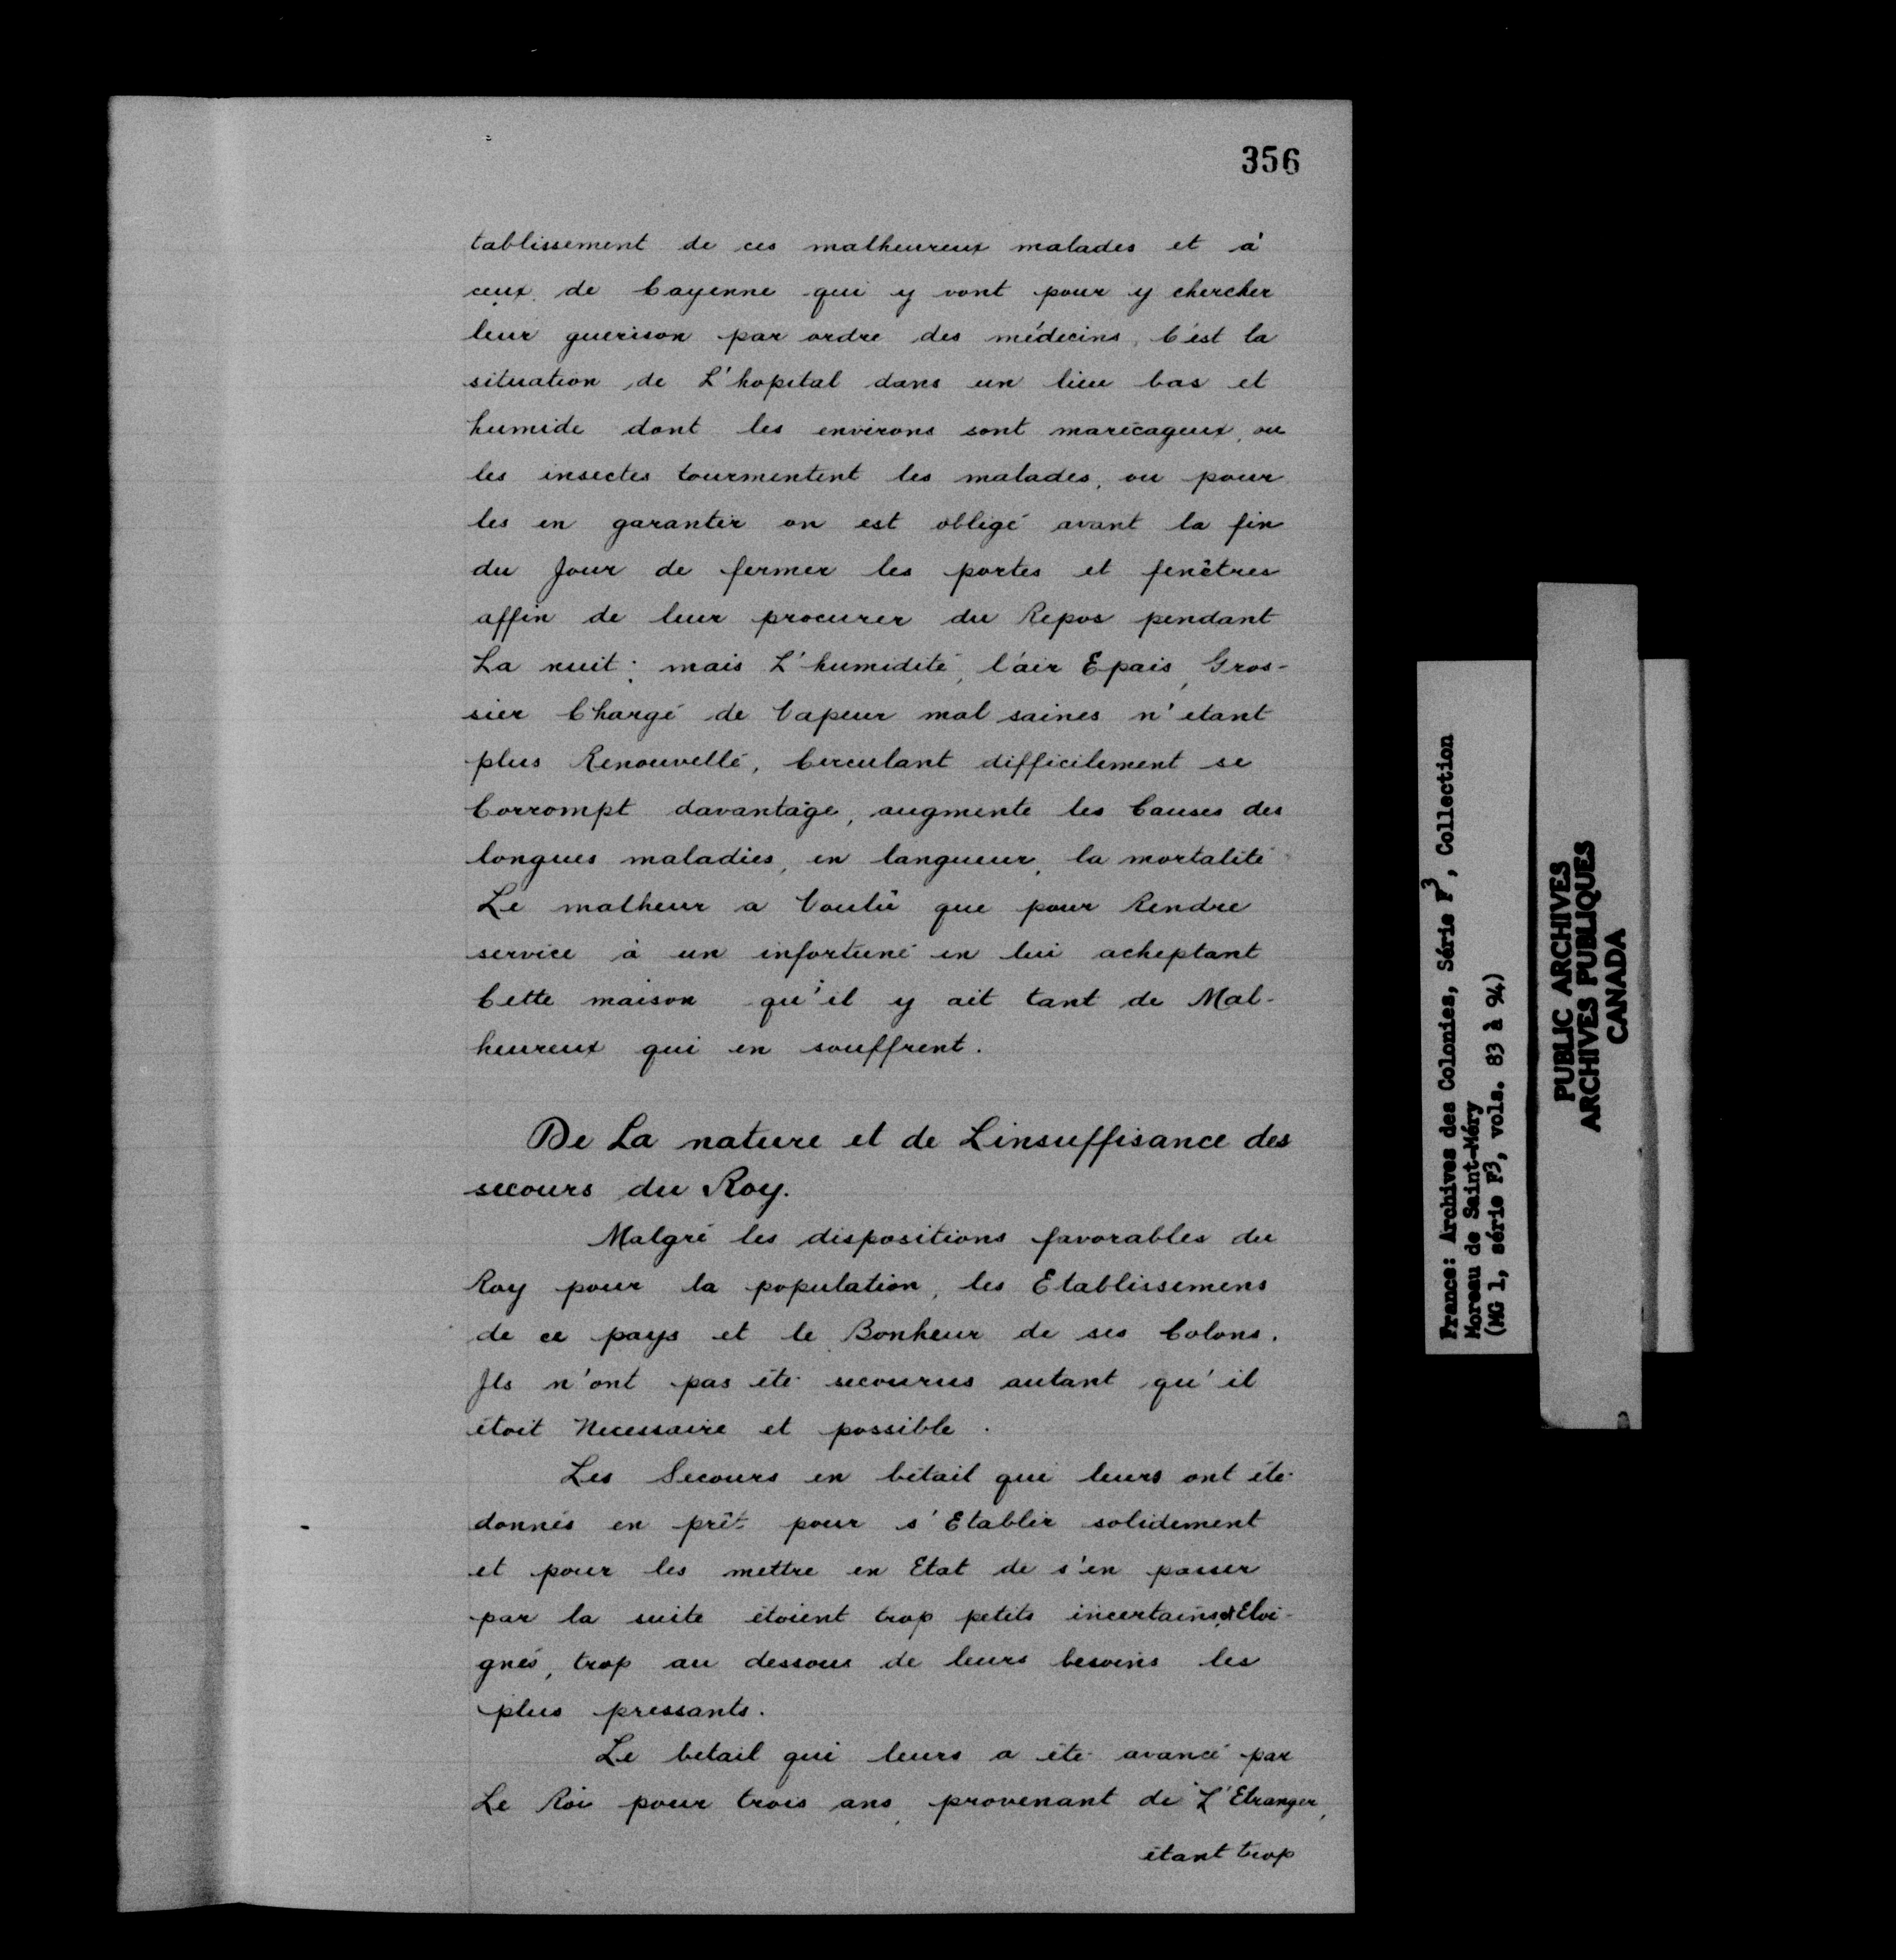 356
tablissement de ces malheureux malades et à
ceux de Cayenne qui y vont pour y chercher
leur guerison par ordre des médecins, C'est la
situation de L'hopital dans un lieu bas et
humide dont les environs sont marécageux, ou
les insectes tourmentent les malades, ou pour
les en garantir on est obligé avant la fin
du Jour de fermer les portes et fenêtres
affin de leur procurer du Repos pendant
La nuit; mais L'humidité, l'air Epais, Gros-
sier Chargé de Vapeur mal saines n'etant
plus Renouvellé, Circulant difficilement se
Corrompt davantage, augmente les Causes des
longues maladies, en langueur, la mortalité
Le malheur a Voulû que pour Rendre
service à un infortuné en lui acheptant
Cette maison qu'il y ait tant de Mal-
heureux qui en souffrent.
De La nature et de Linsuffisance des
secours du Roy.
Malgré les dispositions favorables du
Roy pour la population, les Etablissemens
de ce pays et le Bonheur de ses Colons.
Ils n'ont pas été secourus autant qu'il
étoit Necessaire et possible.
Les Secours en bétail qui leurs ont éte
donnés en prêt pour s'Etablir solidement
et pour les mettre en Etat de s'en passer
par la suite étoient trop petits incertains, et Eloi-
gnés, trop au dessous de leurs besoins les
plus pressants.
Le betail qui leurs a été avancé par
Le Roi pour trois ans, provenant de L'Etranger,
étant trop
France: Archives des Colonies, Série F3, Collection
Moreau de Saint-Méry
(MG 1, série F3, vols. 83 à 94)
PUBLIC ARCHIVES
ARCHIVES PUBLIQUES
CANADA